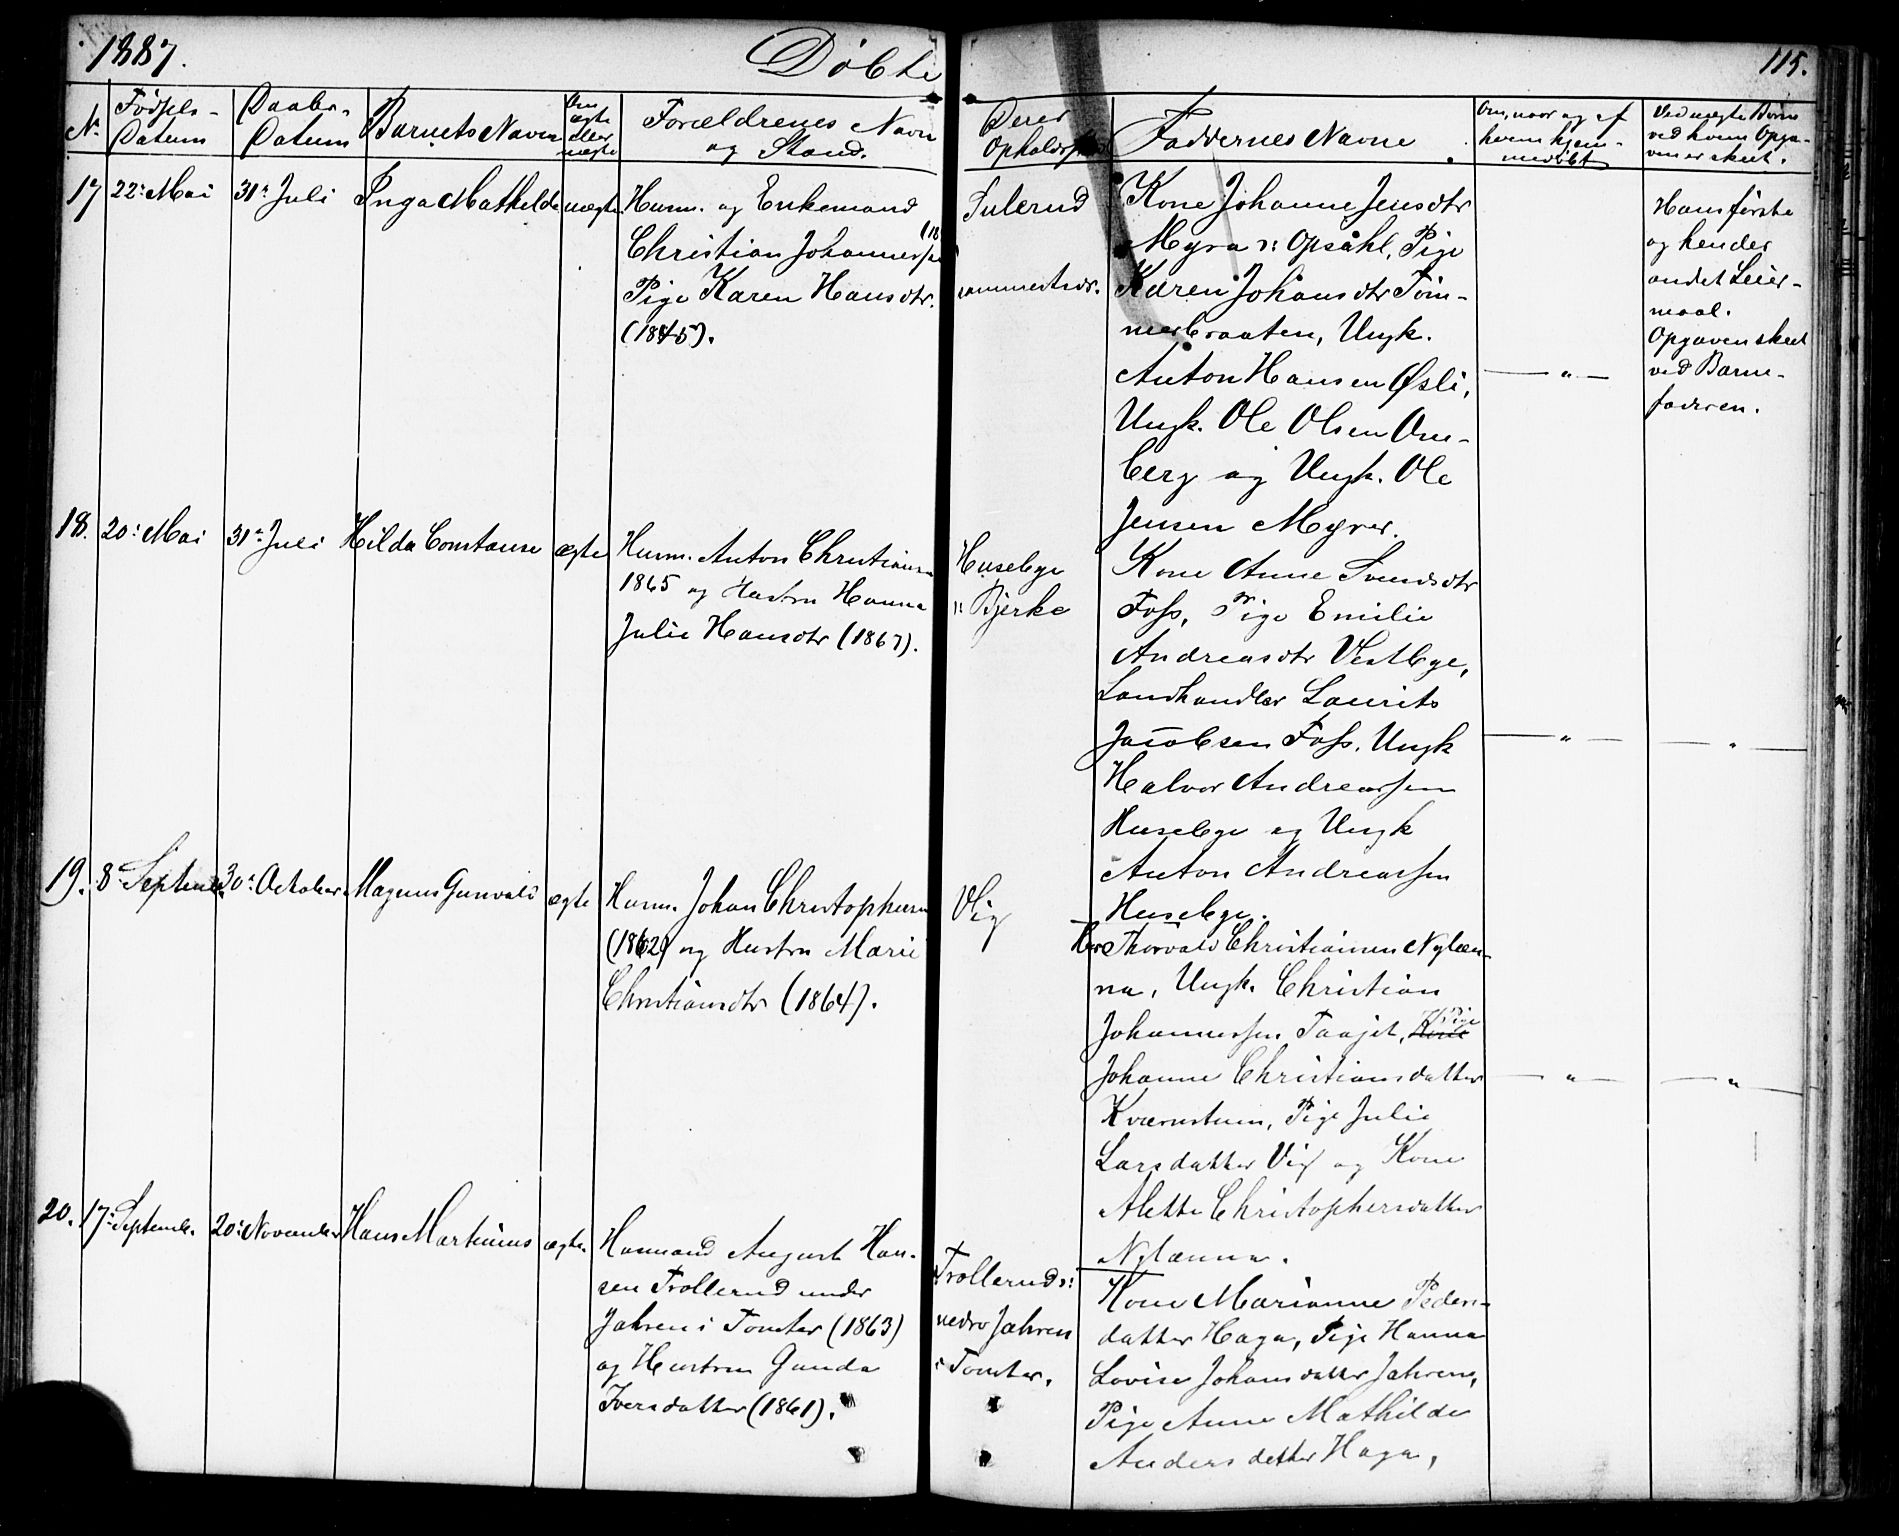 1887. Døbte 115.
No. Fødsels-Datum Daabs-Datum Barnets Navn Om ægte eller uægte Forældrenes Navn og Stand. Deres Opholdssted Faddernes Navne Om, naar og af hvem hjemmedøbt Ved uægte Børn ved hvem Opgaven er skeet.
17 22: Mai 31: Juli Inga Mathilde uægte.
Husm. og Enkemand
Christian Johannessen (18
Pige Karen Hansdtr.
(1845).
Sulerud
sammestedr.
Kone Johanne Jensdtr
Myra v: Opsahl, Pige
Karen Johansdtr Töm-
merbraaten, Ungk.
Anton Hansen Øsli,
Ungk. Ole Olsen Om-
berg og Ungk. Ole
Jensen Myrer.
— " —
Hans første
og hendes
andet Leier-
maal.
Opgaven skeet
ved Barne-
faderen.
18. 20: Mai 31: Juli Hilda Constanse ægte
Husm. Anton Christiansen
1865 og Hustru Hanna
Julie Hansdtr (1867).
Husebye
v: Bjerke
Kone Anne Svendsdtr
Foss, Pige Emilie
Andreasdtr Vestbye,
Landhandler Laurits
Jacobsen Foss, Ungk
Halvor Andreassen
Husebye og Ungk
Anton Andreassen
Husebye.
— " — — " —
19. 8: Septemb. 30: October Magnus Gunvald ægte
Husm. Johan Christophersen
(1862) og Hustru Marie
Christiansdtr (1864).
Vig
Thorvald Christiansen Nylæn-
na, Ungk. Christian
Johannessen Taajet, Kone Pige
Johanne Christiansdatter
Kværnstuen, Pige Julie
Larsdatter Vig og Kone
Alette Christophersdatter
Nylænna.
— " — — " —
20. 17: Septemb. 20: November Hans Martinius ægte.
Husmand August Han-
sen Trollerud under
Jahren i Tomter (1863)
og Hustru Gunda
Iversdatter (1861).
Trollerud v:
nedro Jahren
i Tomter.
Kone Marianne Peders-
datter Haga, Pige Hanna
Lovise Johansdatter Jahren,
Pige Anne Mathilde
Andersdatter Haga,